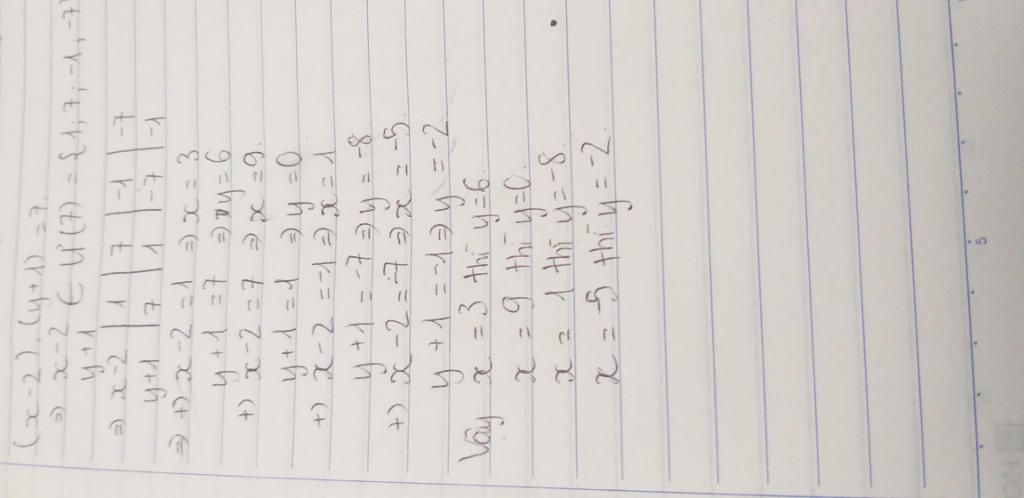 (x-2).(y+1)=7.
⇒ x-2 ∈ Ư(7) = {1; 7; -1; -7
y+1
⇒ x-2 | 1 | 7 | -1 | -7
y+1 | 7 | 1 | -7 | -1
⇒ +) x-2=1 ⇒ x=3
y+1=7 ⇒ y=6
+) x-2=7 ⇒ x=9.
y+1=1 ⇒ y=0
+) x-2=-1 ⇒ x=1
y+1=-7 ⇒ y=-8
+) x-2=-7 ⇒ x=-5.
y+1=-1 ⇒ y=-2
Vậy x=3 thì y=6.
x=9 thì y=0.
x=1 thì y=-8.
x=-5 thì y=-2.
5